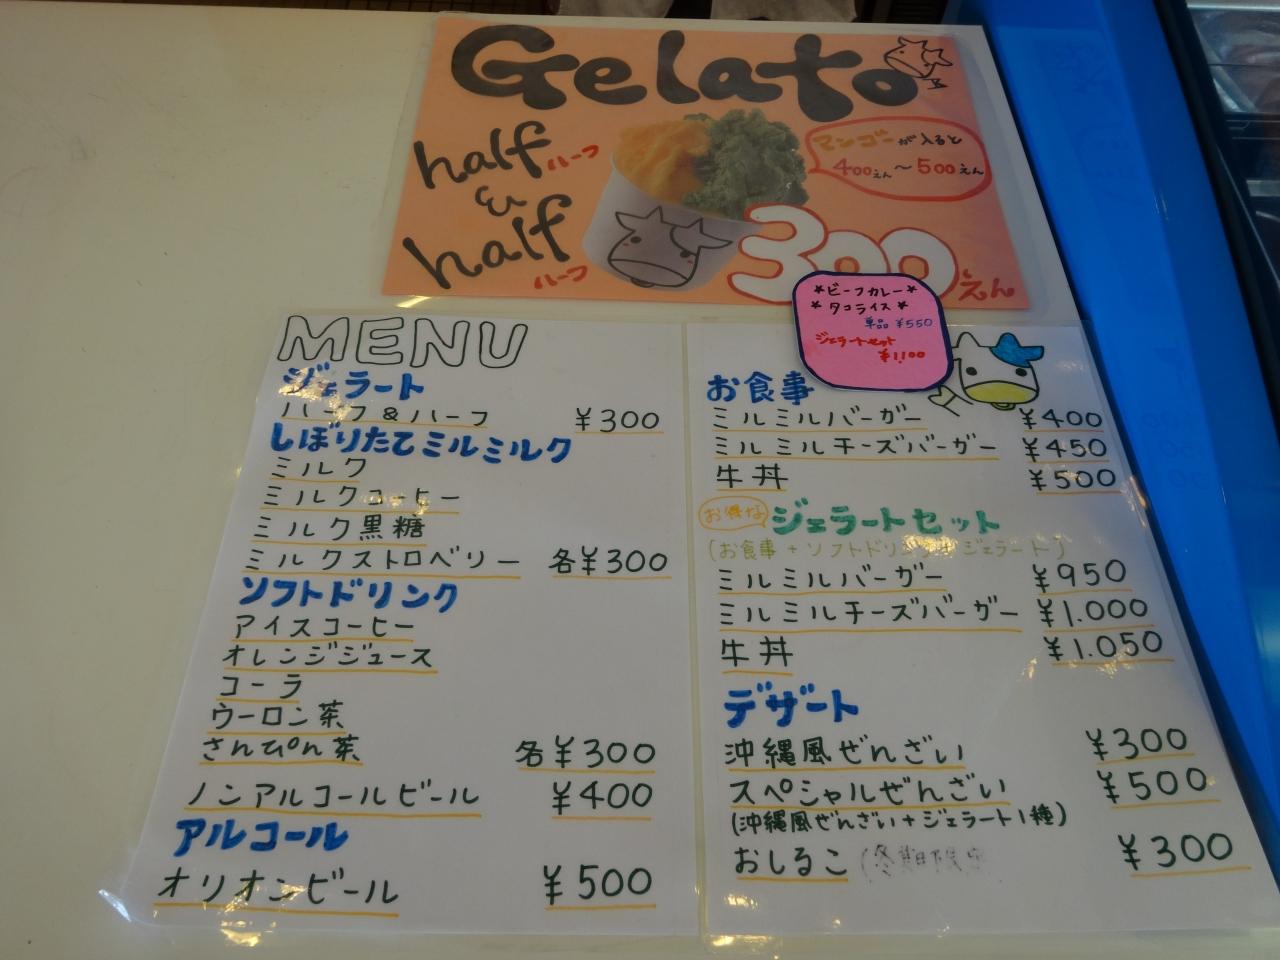 Gelato
half ハーフ
&
half ハーフ
マンゴーが入ると
400えん〜500えん
300えん
*ビーフカレー*
*タコライス*
単品 ¥550
ジェラートセット
¥1,100
MENU
ジェラート
ハーフ&ハーフ ¥300
しぼりたてミルミルク
ミルク
ミルクコーヒー
ミルク黒糖
ミルクストロベリー 各¥300
ソフトドリンク
アイスコーヒー
オレンジジュース
コーラ
ウーロン茶
さんぴん茶 各¥300
ノンアルコールビール ¥400
アルコール
オリオンビール ¥500
お食事
ミルミルバーガー ¥400
ミルミルチーズバーガー ¥450
牛丼 ¥500
お得な ジェラートセット
(お食事+ソフトドリンク+ジェラート)
ミルミルバーガー ¥950
ミルミルチーズバーガー ¥1.000
牛丼 ¥1.050
デザート
沖縄風ぜんざい ¥300
スペシャルぜんざい ¥500
(沖縄風ぜんざい+ジェラート1種)
おしるこ (冬期限定 ¥300